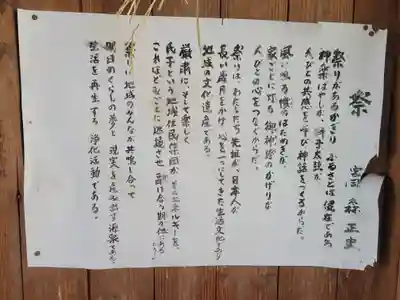 祭
宮森正史
祭りがあるかぎり ふるさとは健在である
神楽ばやしが 太鼓が
人びとの共感を呼び 神話をつくるからだ。
風に鳴る幟のはためきが
家ごとに灯る御神燈のかげりな
人びとの心をつなぐからだ。
祭りは、わたしたち先祖が、日本人が
長い歳月をかけ 心を一つにしてきた生活文化であり
地域の文化遺産である。
厳粛に、そして楽しく
氏子という地域住民集団が、そのエネルギーを、
これほどみごとに燃焼させ
祭りは地域のみんなが共鳴し合って
明日のくらしの夢と現実を生み出す源泉である。
生活を再生する 浄化活動である。